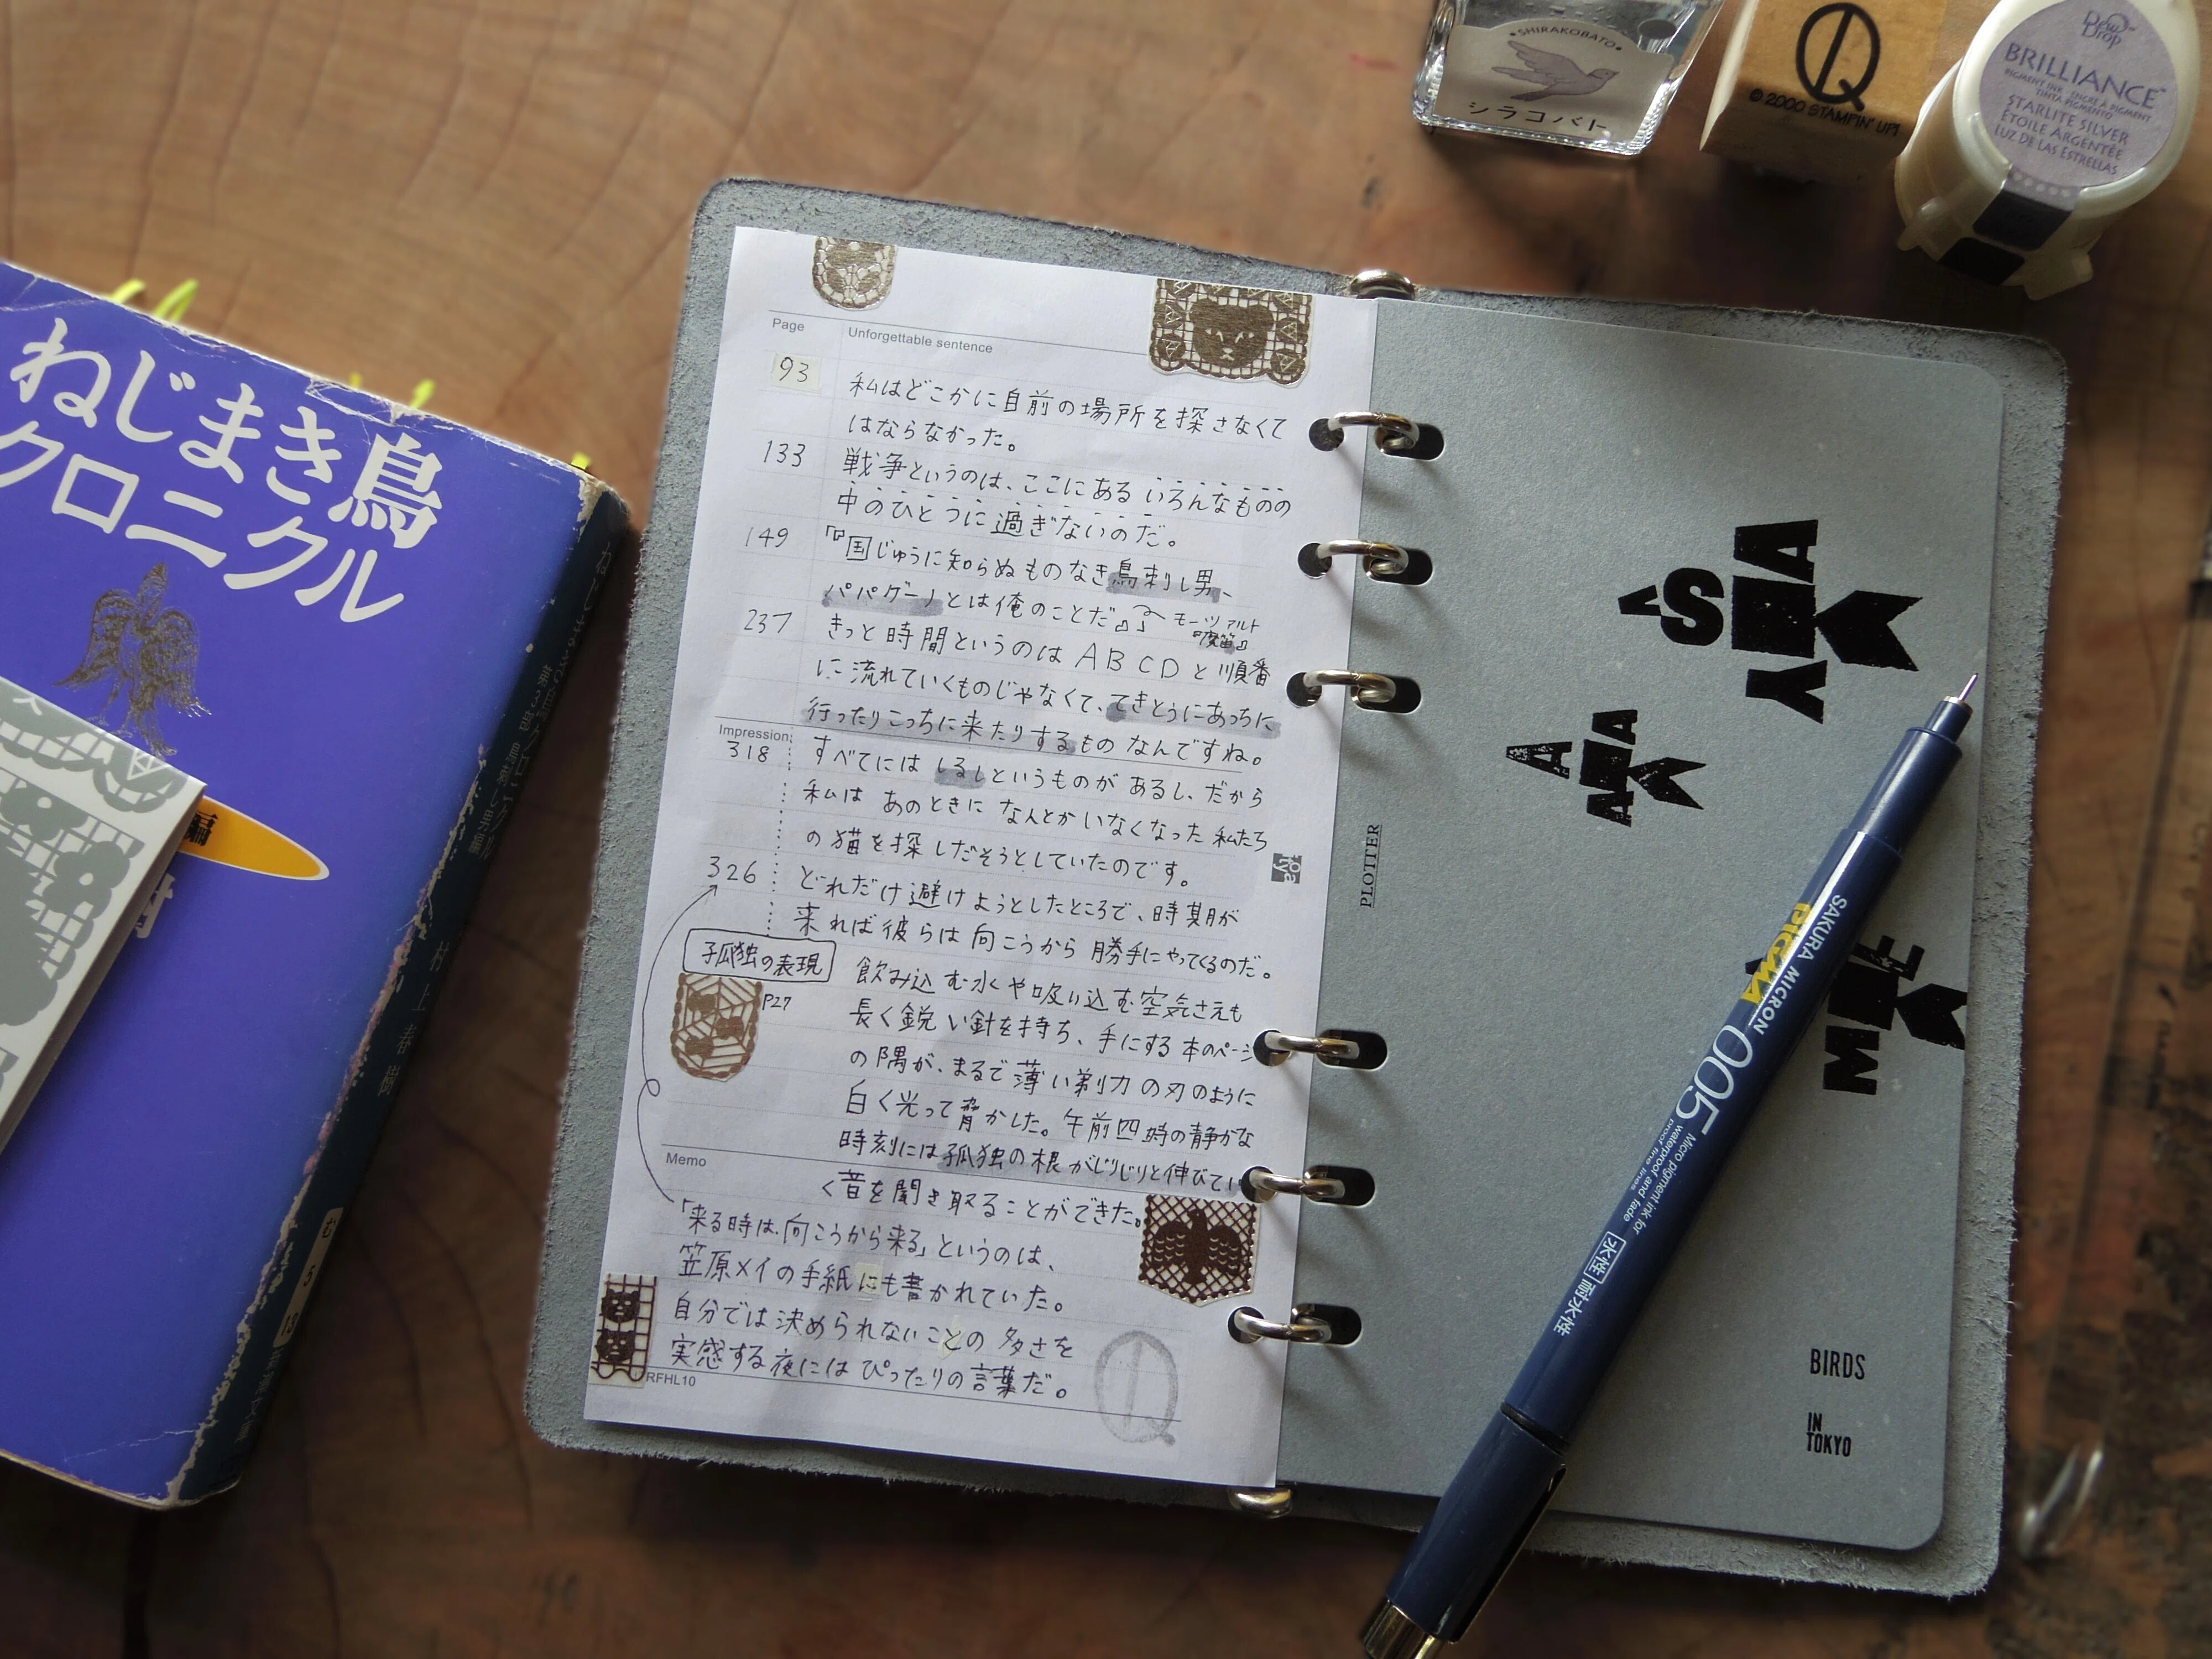 ねじまき鳥
クロニクル
編
村上春樹
む
5
13
SHIRAKOBATO
シラコバト
Q
© 2000 STAMPIN' UP!
Dew Drop
BRILLIANCE™
PIGMENT INK · ENCRE À PIGMENT
TINTA PIGMENTO
STARLITE SILVER
ÉTOILE ARGENTÉE
LUZ DE LAS ESTRELLAS
Page Unforgettable sentence
93 私はどこかに自前の場所を探さなくて
はならなかった。
133 戦争というのは、ここにあるいろんなものの
中のひとつに過ぎないのだ。
149 「『国じゅうに知らぬものなき鳥刺し男、
パパゲーノとは俺のことだ』」 モーツァルト
『魔笛』
237 きっと時間というのはABCDと順番
に流れていくものじゃなくて、てきとうにあっちに
行ったりこっちに来たりするものなんですね。
Impression
318 すべてにはしるしというものがあるし、だから
私はあのときになんとかいなくなった私たち
の猫を探しだそうとしていたのです。
326 どれだけ避けようとしたところで、時期が
来れば彼らは向こうから勝手にやってくるのだ。
孤独の表現
P27
飲み込む水や吸い込む空気さえも
長く鋭い針を持ち、手にする本のページ
の隅が、まるで薄い剃刀の刃のように
白く光って脅かした。午前四時の静かな
時刻には孤独の根がじりじりと伸びてい
く音を聞き取ることができた。
Memo
「来る時は、向こうから来る」というのは、
笠原メイの手紙にも書かれていた。
自分では決められないことの多さを
実感する夜にはぴったりの言葉だ。
RFHL10
Q
PLOTTER
BIRDS
IN
TOKYO
SAKURA MICRON
PIGMA
005
Micro pigment ink for
waterproof and fade
proof fine lines
水性 耐水性